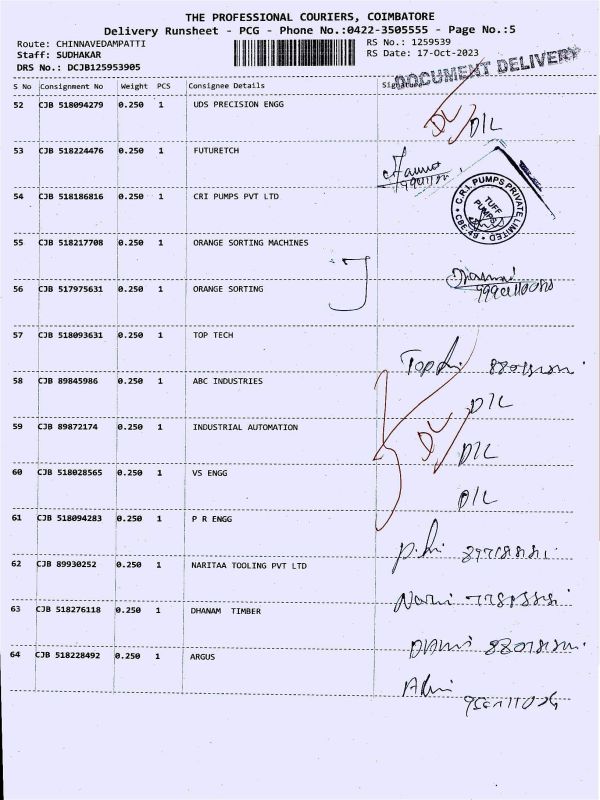 THE PROFESSIONAL COURIERS, COIMBATORE
Delivery Runsheet - PCG - Phone No.:0422-3505555 - Page No.:5
Route: CHINNAVEDAMPATTI RS No.: 1259539
Staff: SUDHAKAR RS Date: 17-Oct-2023
DRS No.: DCJB125953905
DOCUMENT DELIVERY
S No Consignment No Weight PCS Consignee Details Signature
52 CJB 518094279 0.250 1 UDS PRECISION ENGG
DL D/L
53 CJB 518224476 0.250 1 FUTURETCH
54 CJB 518186816 0.250 1 CRI PUMPS PVT LTD
C.R.I. PUMPS PRIVATE LIMITED
TUFF PUMPS
CBE-49
55 CJB 518217708 0.250 1 ORANGE SORTING MACHINES
56 CJB 517975631 0.250 1 ORANGE SORTING
57 CJB 518093631 0.250 1 TOP TECH
58 CJB 89845986 0.250 1 ABC INDUSTRIES
D/L
59 CJB 89872174 0.250 1 INDUSTRIAL AUTOMATION
DL D/L
60 CJB 518028565 0.250 1 VS ENGG
D/L
61 CJB 518094283 0.250 1 P R ENGG
62 CJB 89930252 0.250 1 NARITAA TOOLING PVT LTD
63 CJB 518276118 0.250 1 DHANAM TIMBER
64 CJB 518228492 0.250 1 ARGUS